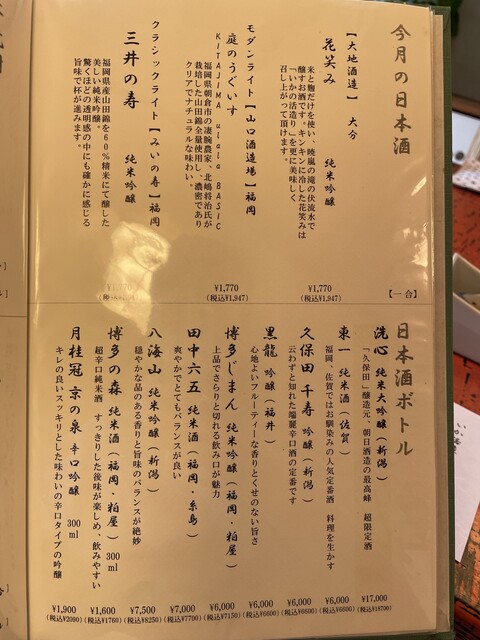 今月の日本酒
【大地酒造】 大分
花笑み 純米吟醸
米と麹だけを使い、暁嵐の滝の伏流水で
醸すお酒です。キンキンに冷した花笑みは
「いかの活造り」を更に美味しく
召し上がって頂けます。
¥1,770
(税込¥1,947)
【一合】
モダンライト【山口酒造場】福岡
庭のうぐいす
KITAJIMA ulala BASIC
福岡県朝倉市の凄腕農家、北嶋将治氏が
栽培した山田錦全量使用し、濃密であり
クリアでナチュラルな味わい。
¥1,770
(税込¥1,947)
クラシックライト【みいの寿】福岡
三井の寿 純米吟醸
福岡県産山田錦を60%精米にて醸した
美しい純米吟醸。
驚くほどの透明感の中にも確かに感じる
旨味で杯が進みます。
日本酒ボトル
洗心 純米大吟醸(新潟)
「久保田」醸造元 朝日酒造の最高峰 超限定酒
¥17,000
(税込¥18700)
東一 純米酒(佐賀)
福岡、佐賀ではお馴染みの人気定番酒 料理を生かす
¥6,000
(税込¥6600)
久保田 千寿 吟醸(新潟)
云わずと知れた端麗辛口酒の定番です
¥6,000
(税込¥6600)
黒龍 吟醸(福井)
心地よいフルーティーな香りとくせのない旨さ
¥6,000
(税込¥6600)
博多じまん 純米吟醸(福岡・粕屋)
上品でさらりと切れる飲み口が魅力
¥6,000
(税込¥7150)
田中六五 純米酒(福岡・糸島)
爽やかでとてもバランスが良い
¥7,000
(税込¥7700)
八海山 純米吟醸(新潟)
穏やかな品のある香りと旨味のバランスが絶妙
¥7,500
(税込¥8250)
博多の森 純米酒(福岡・粕屋) 300ml
超辛口純米酒 すっきりした後味が楽しめ、飲みやすい
¥1,600
(税込¥1760)
月桂冠 京の泉 辛口吟醸 300ml
キレの良いスッキリとした味わいの辛口タイプの吟醸
¥1,900
(税込¥2090)